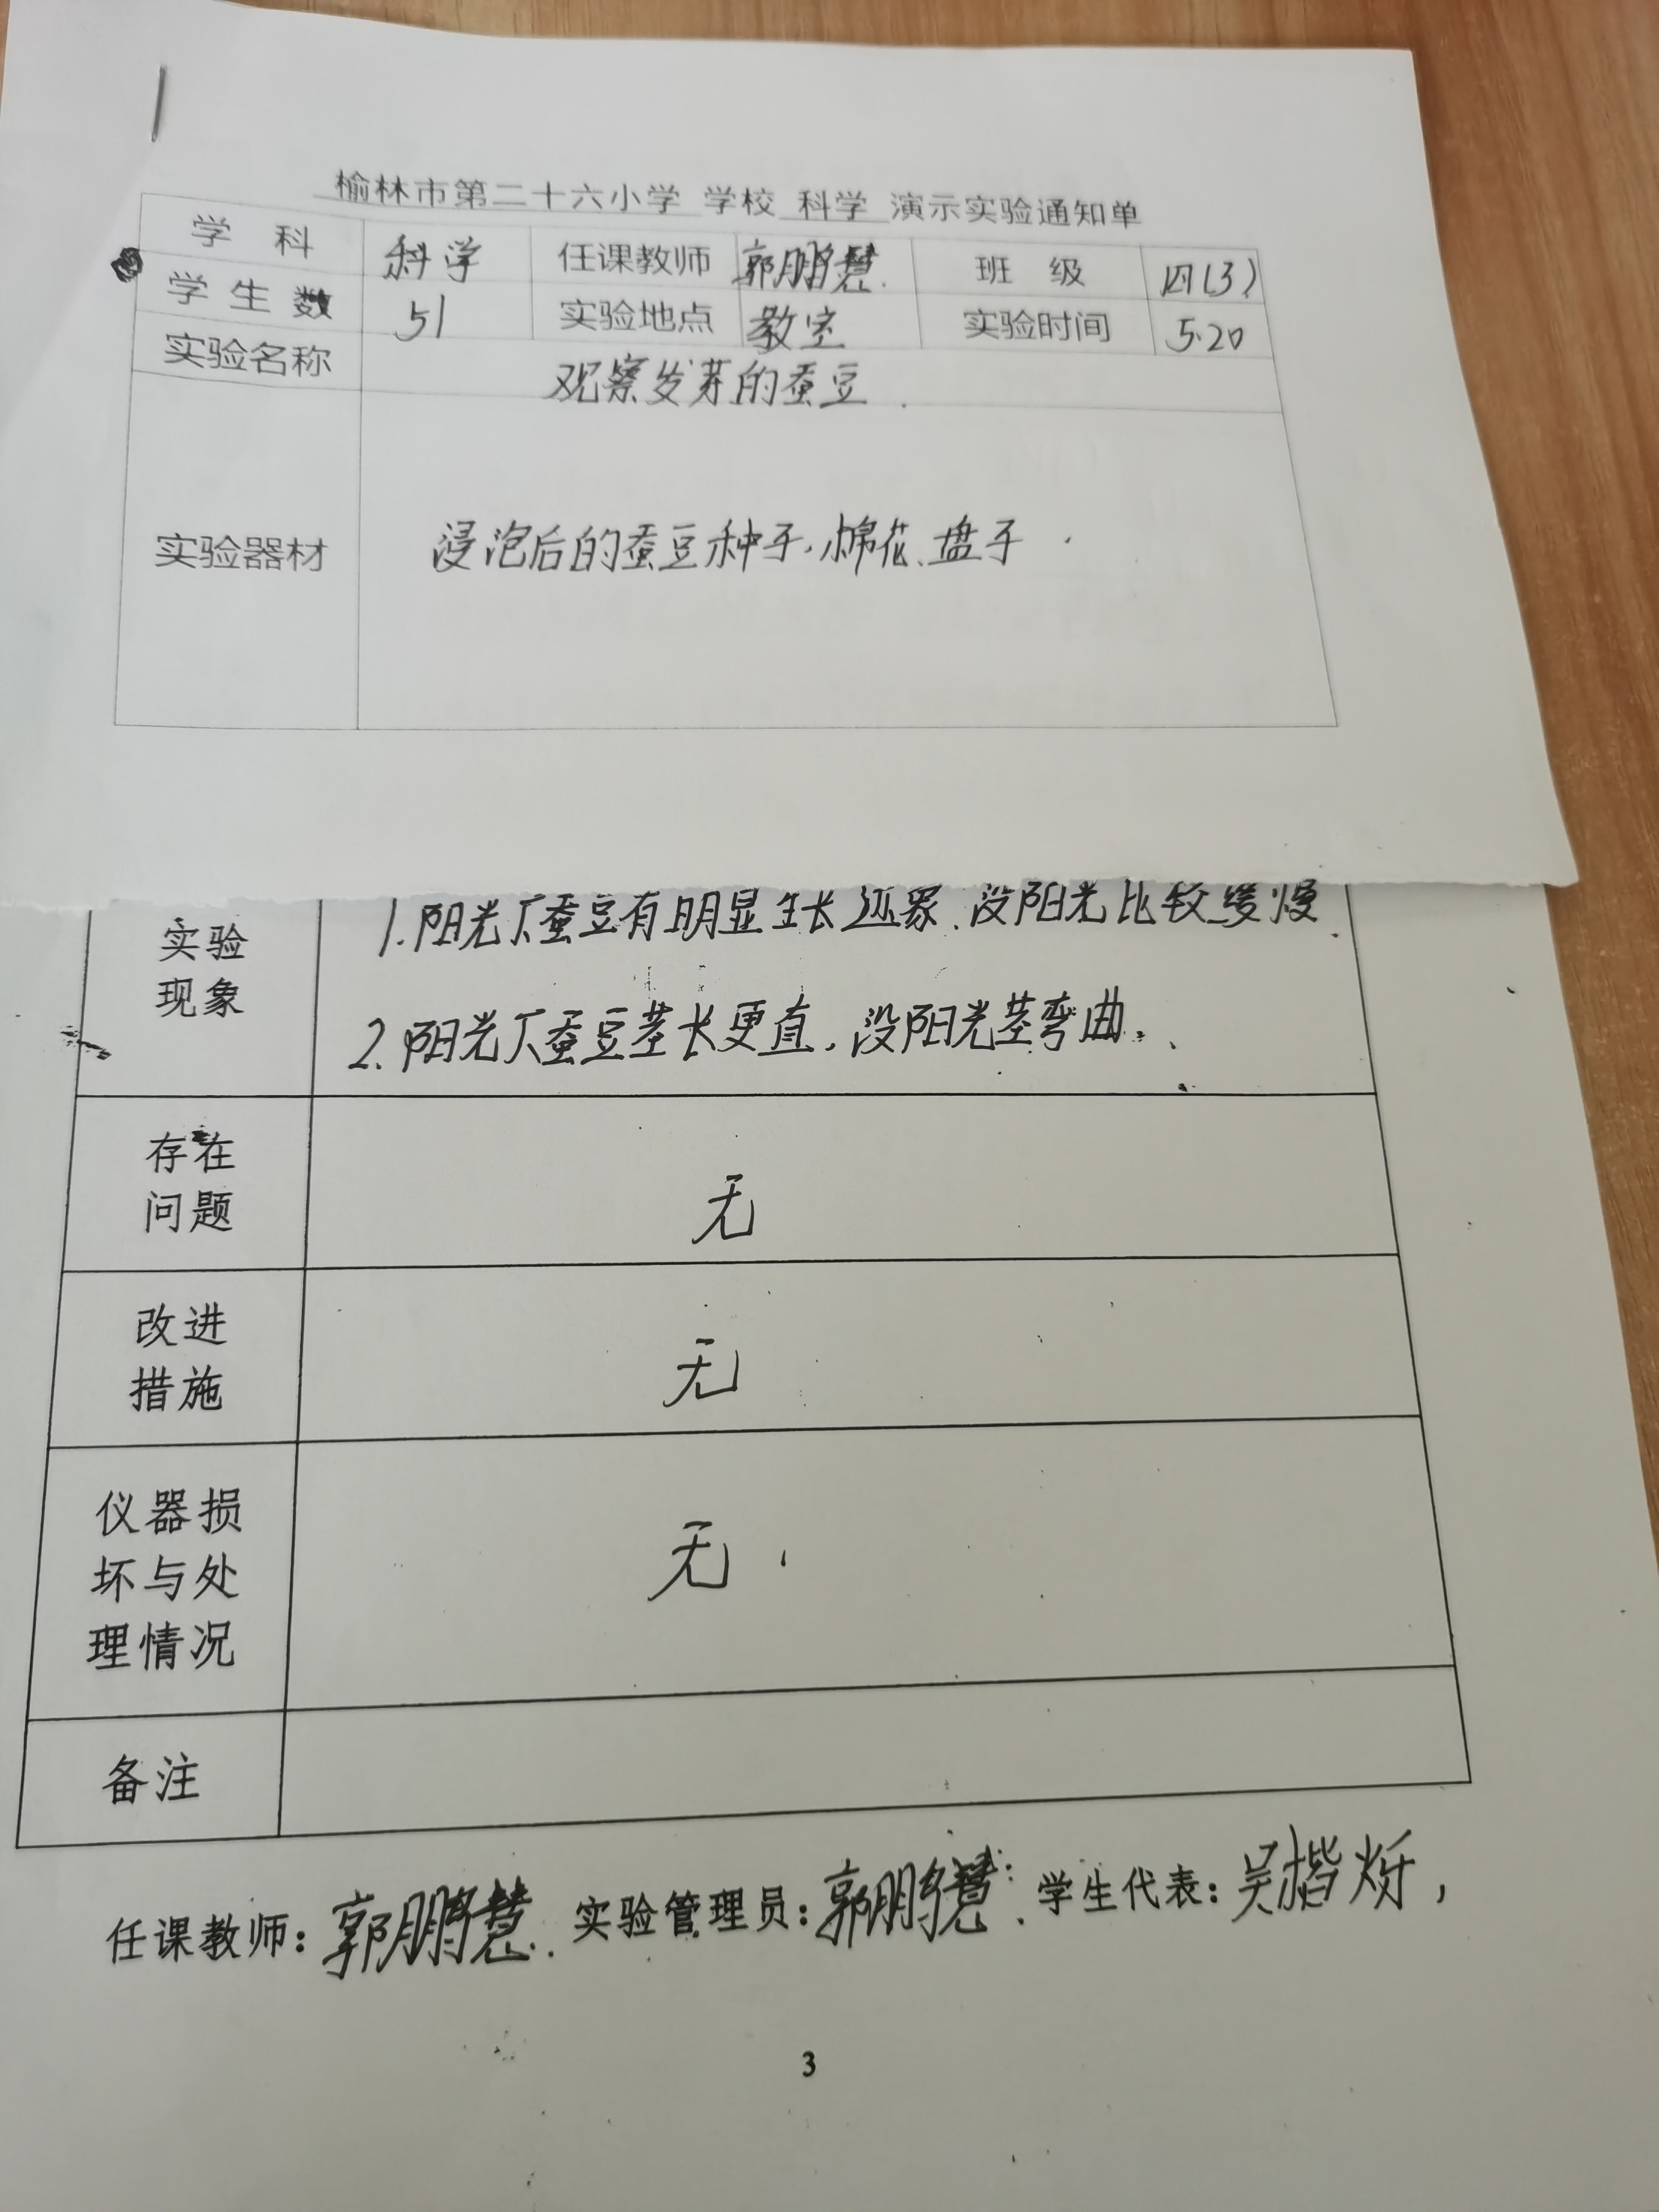 榆林市第二十六小学 学校 科学 演示实验通知单
学 科 科学 任课教师 郭鹏慧 班 级 四(3)
学生数 51 实验地点 教室 实验时间 5.20
实验名称 观察发芽的蚕豆.
实验器材 浸泡后的蚕豆种子、棉花、盘子.
实验
现象
1.阳光下蚕豆有明显生长迹象、没阳光比较缓慢.
2.阳光下蚕豆茎长更直,没阳光茎弯曲.
存在
问题
无
改进
措施
无
仪器损
坏与处
理情况
无.
备注
任课教师:郭鹏慧. 实验管理员:郭鹏慧. 学生代表:吴楷烁,
3